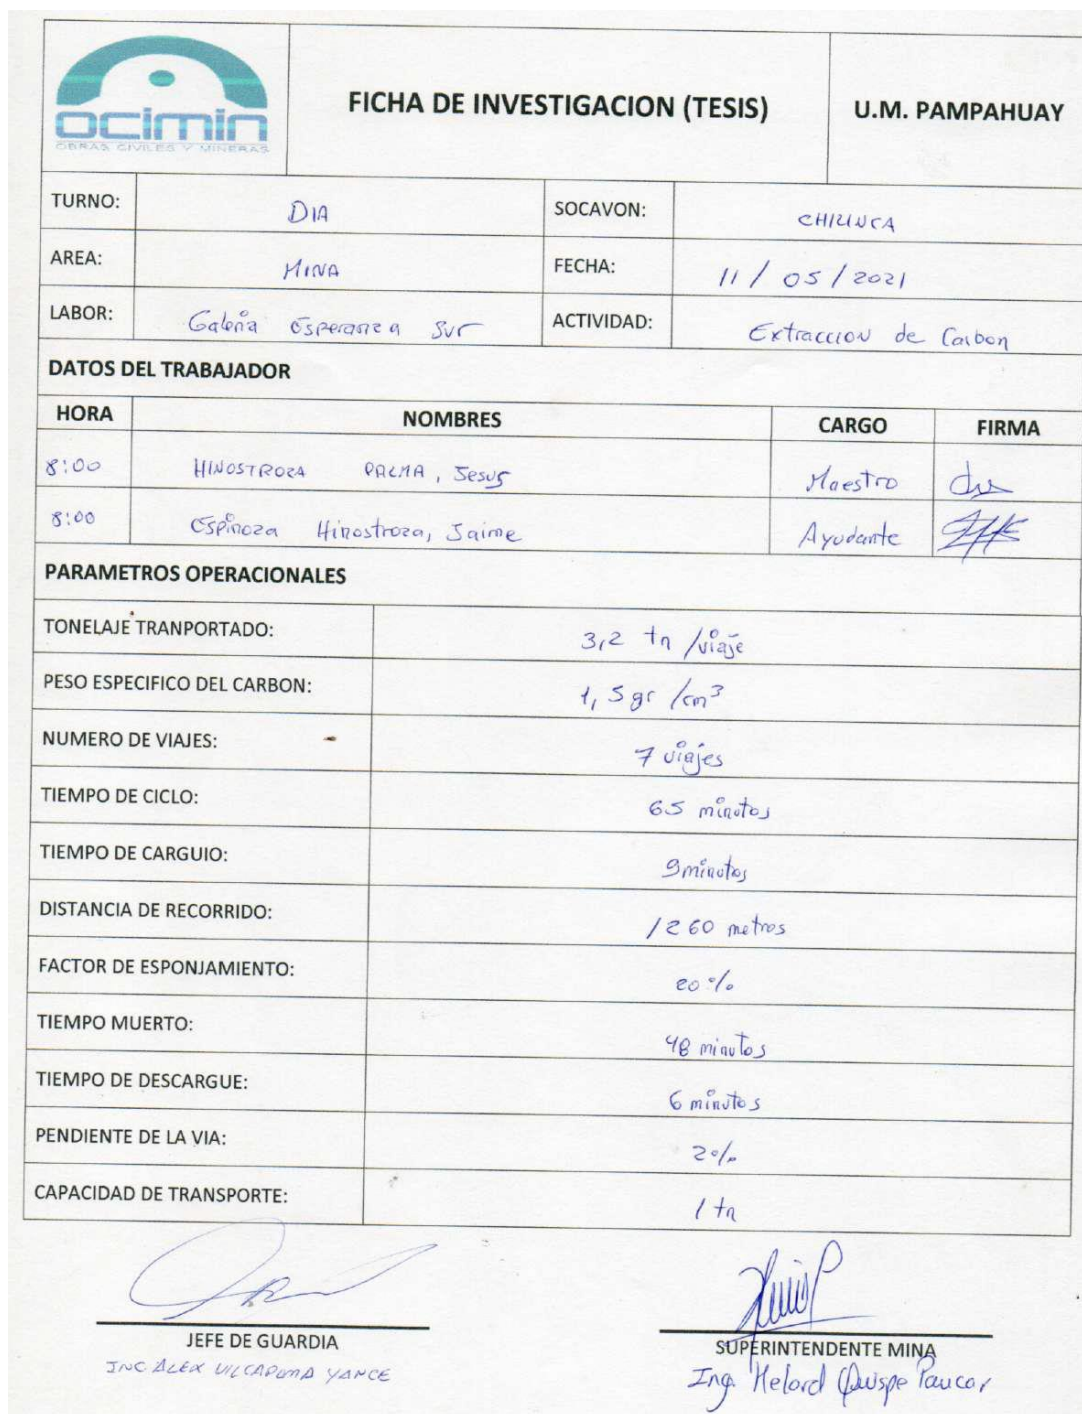 ocimin
OBRAS CIVILES Y MINERAS
FICHA DE INVESTIGACION (TESIS)
U.M. PAMPAHUAY
TURNO: DIA SOCAVON: CHIUNCA
AREA: MINA FECHA: 11/05/2021
LABOR: Galeria Esperanza Sur ACTIVIDAD: Extraccion de Carbon
DATOS DEL TRABAJADOR
HORA NOMBRES CARGO FIRMA
8:00 HINOSTROZA PALMA, Jesus Maestro
8:00 Espinoza Hinostroza, Jaime Ayudante
PARAMETROS OPERACIONALES
TONELAJE TRANPORTADO: 3,2 tn /viaje
PESO ESPECIFICO DEL CARBON: 1,5 gr /cm³
NUMERO DE VIAJES: 7 viajes
TIEMPO DE CICLO: 65 minutos
TIEMPO DE CARGUIO: 9 minutos
DISTANCIA DE RECORRIDO: 1260 metros
FACTOR DE ESPONJAMIENTO: 20%
TIEMPO MUERTO: 48 minutos
TIEMPO DE DESCARGUE: 6 minutos
PENDIENTE DE LA VIA: 2%
CAPACIDAD DE TRANSPORTE: 1 tn
JEFE DE GUARDIA
ING ALEX VILCAPOMA YANCE
SUPERINTENDENTE MINA
Ing. Helord Quispe Paucar